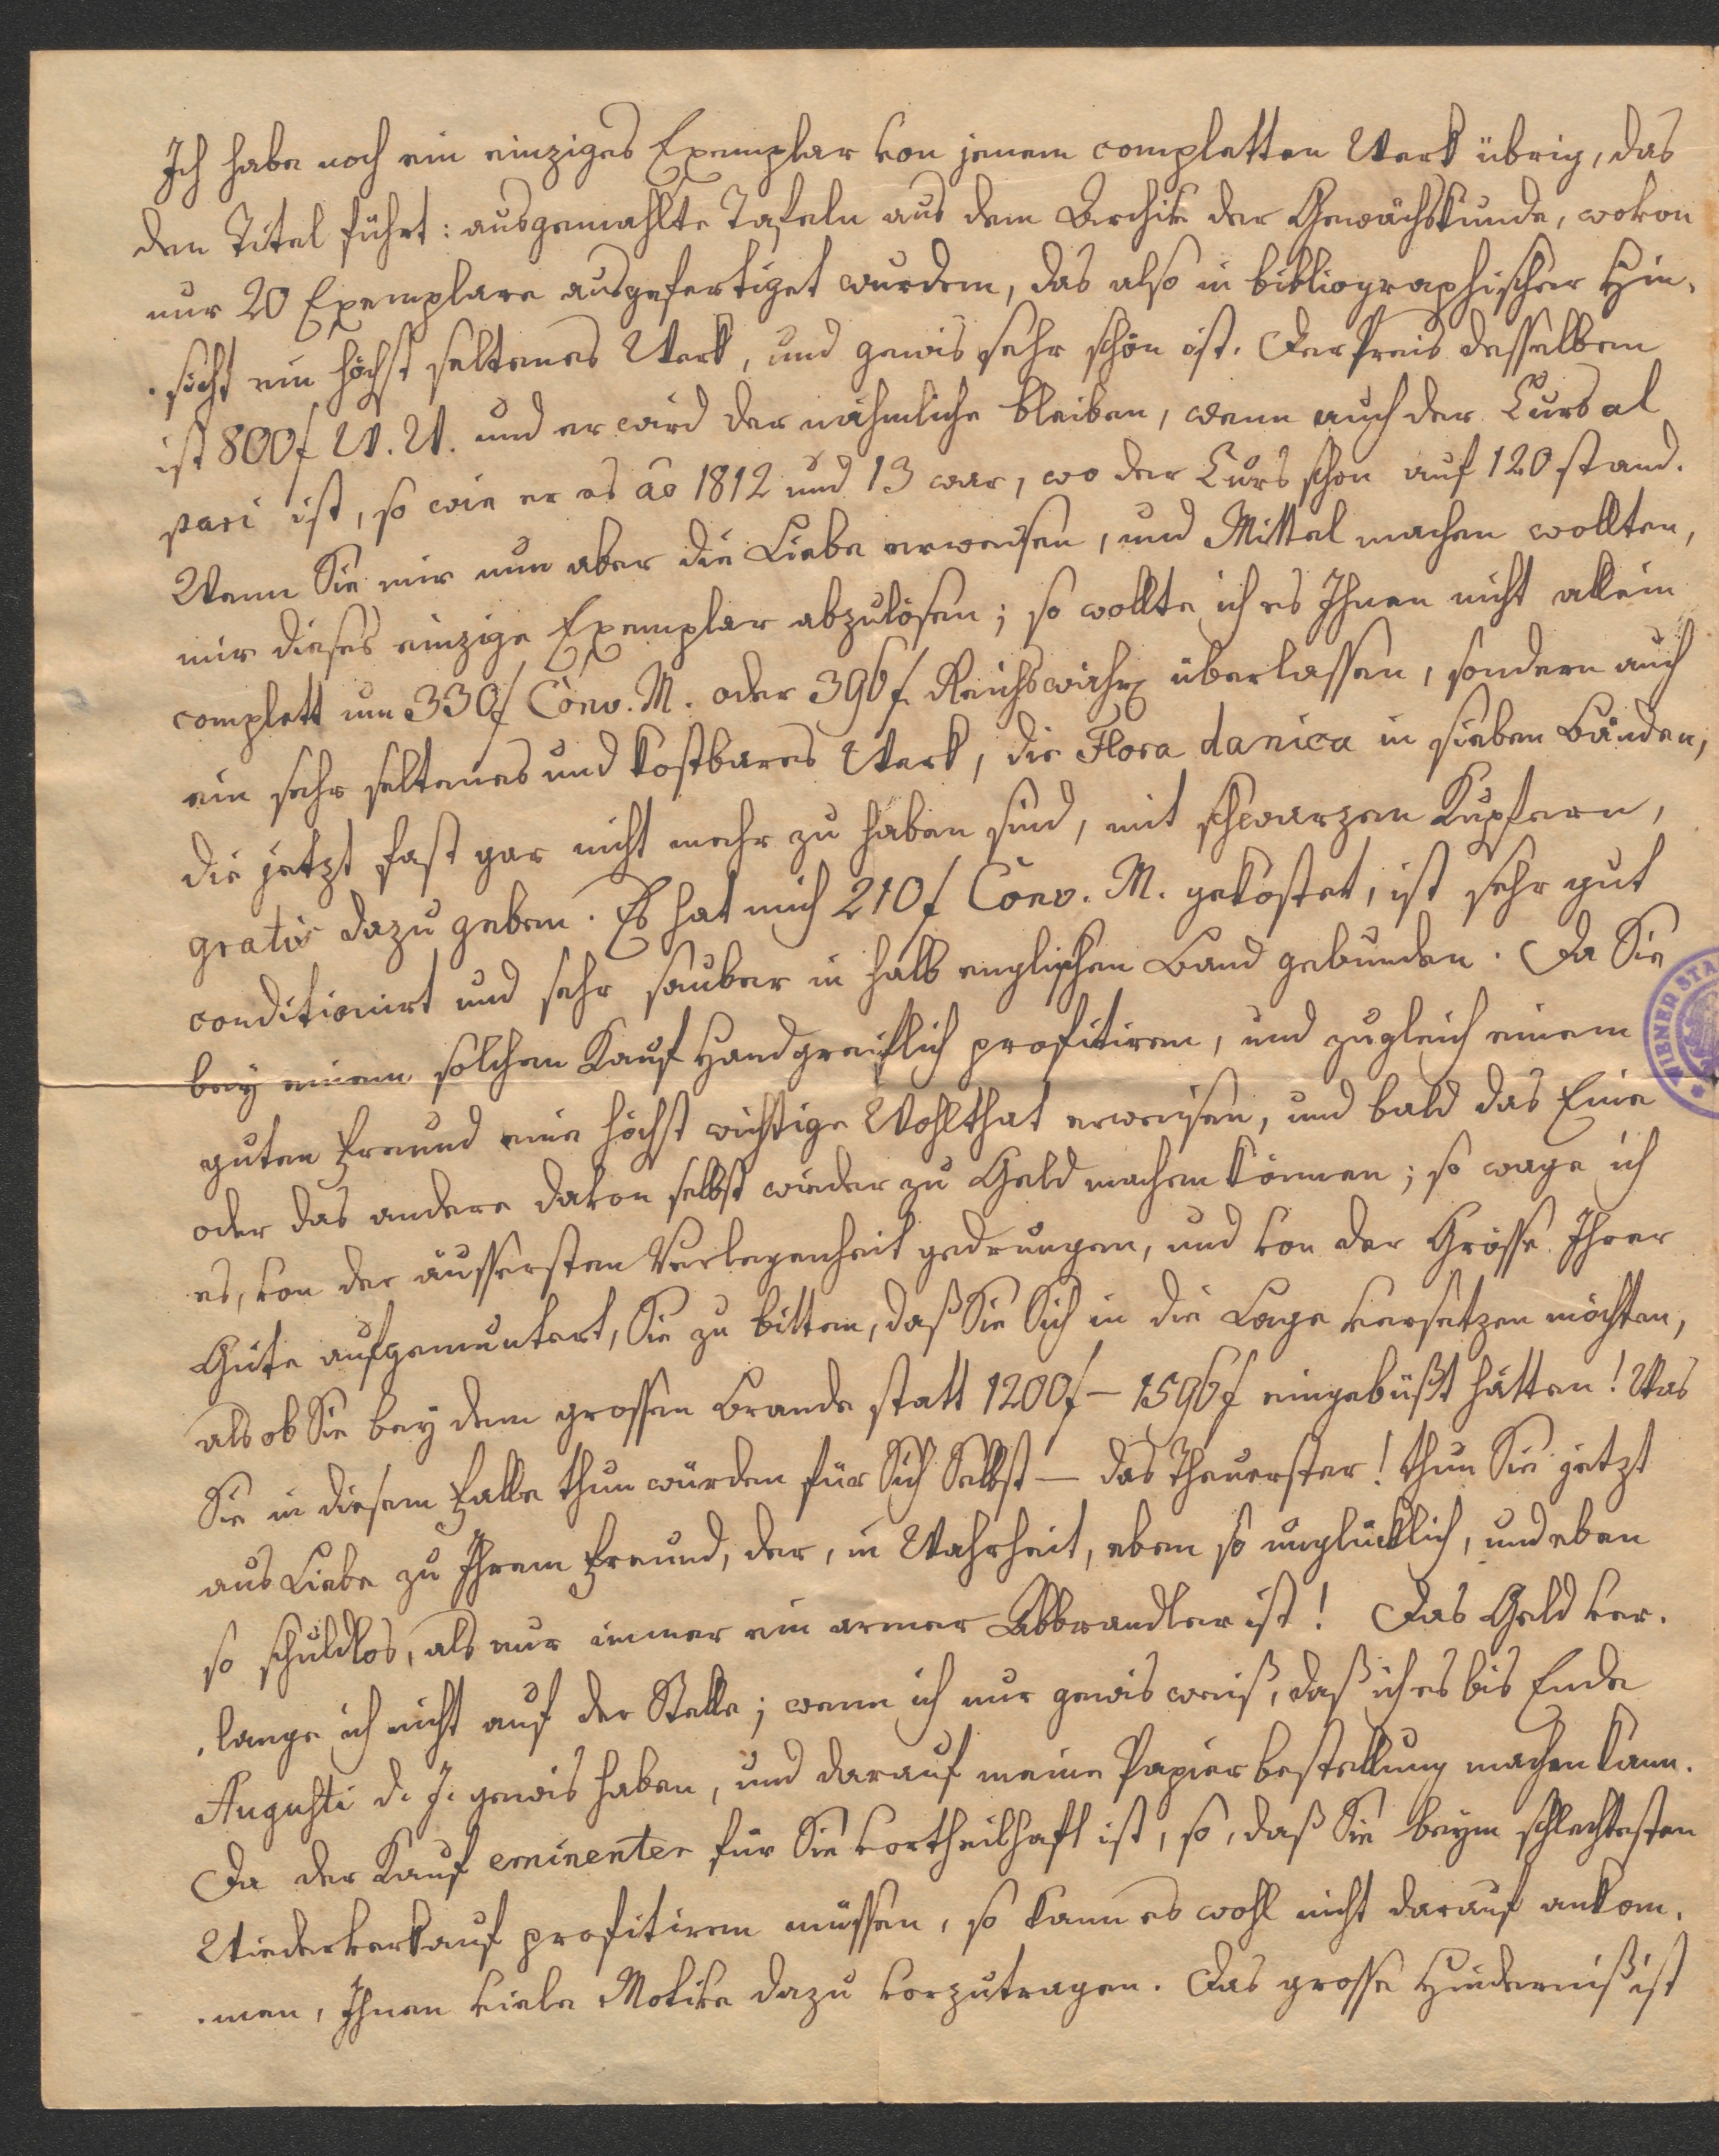 Ich habe noch ein einziges Exemplar von jenem completten Werk übrig, das
den Titel führt: ausgemahlte Tafeln aus dem Archiv der Gewächskunde, wovon
nur 20 Exemplare ausgefertiget wurden, das also in bibliographischer Hin-
-sicht ein höchst seltenes Werk, und gewis sehr schön ist. Der Preis desselben
ist 800f W. W. und er wird der nähmliche bleiben, wenn auch der Curs al
pari ist, so wie er es ao 1812 und 13 war, wo der Curs schon auf 120 stand.
Wenn Sie mir nun aber die Liebe erweisen, und Mittel machen wollten,
mir dieses einzige Exemplar abzulösen; so wollte ich es Ihnen nicht allein
complett um 330f Conv. M. oder 396f. Reichswähr. überlassen, sondern auch
ein sehr seltenes und kostbares Werk, die Flora danica in sieben Bänden,
die jetzt fast gar nicht mehr zu haben sind, mit schwarzen Kupfern,
gratis dazu geben. Es hat mich 210f Conv. M. gekostet, ist sehr gut
conditionirt und sehr sauber in halb englischen Band gebunden. Da Sie
bey einem solchen Kauf Handgreiflich profitiren, und zugleich einem
guten Freund eine höchst wichtige Wohlthat erweisen, und bald das Eine
oder das andere davon selbst wieder zu Geld machen können; so wage ich
es, von der äussersten Verlegenheit gedrungen, und von der Grösse Ihrer
Güte aufgemuntert, Sie zu bitten, daß Sie Sich in die Lage versetzen möchten,
als ob Sie bey dem grossen Brande statt 1200f – 1596f eingebüßt hätten! Was
Sie in diesem Falle thun würden für Sich Selbst – das Theuerster! thun Sie jetzt
aus Liebe zu Ihrem Freund, der, in Wahrheit, eben so unglücklich, und eben
so schuldlos, als nur immer ein armer Abbrandler ist! Das Geld ver-
-lange ich nicht auf der Stelle; wenn ich nur gewis weiß, daß ich es bis Ende
Augusti d. J. gewis haben, und darauf meine Papierbestellung machen kann.
Da der Kauf eminenter für Sie vortheilhaft ist, so, daß Sie beym schlechtesten
Wiederverkauf profitiren müssen, so kann es wohl nicht darauf ankom-
-men, Ihnen viele Motive dazu vorzutragen. Das grosse Hinderniß ist
WIENER STA